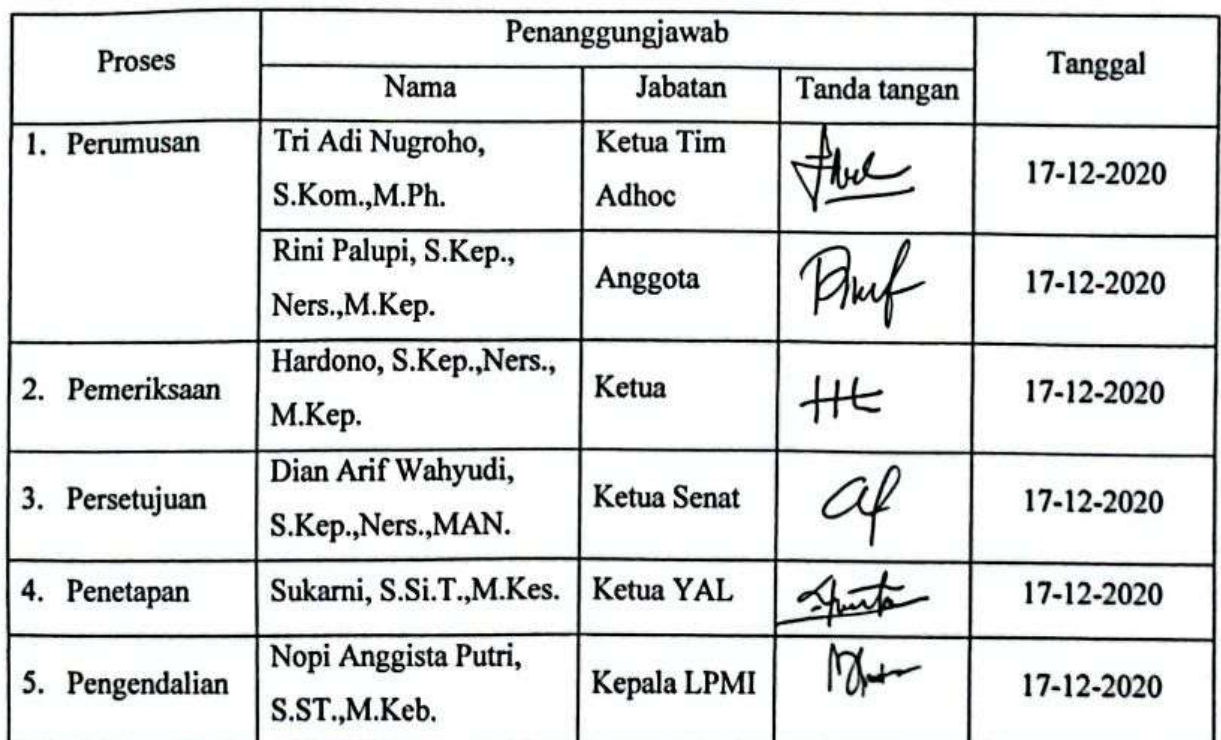 Proses Penanggungjawab Tanggal
Nama Jabatan Tanda tangan
1. Perumusan Tri Adi Nugroho, Ketua Tim
S.Kom.,M.Ph. Adhoc 17-12-2020
Rini Palupi, S.Kep.,
Ners.,M.Kep. Anggota 17-12-2020
2. Pemeriksaan Hardono, S.Kep.,Ners., Ketua 17-12-2020
M.Kep.
3. Persetujuan Dian Arif Wahyudi, Ketua Senat 17-12-2020
S.Kep.,Ners.,MAN.
4. Penetapan Sukarni, S.Si.T.,M.Kes. Ketua YAL 17-12-2020
5. Pengendalian Nopi Anggista Putri, Kepala LPMI 17-12-2020
S.ST.,M.Keb.